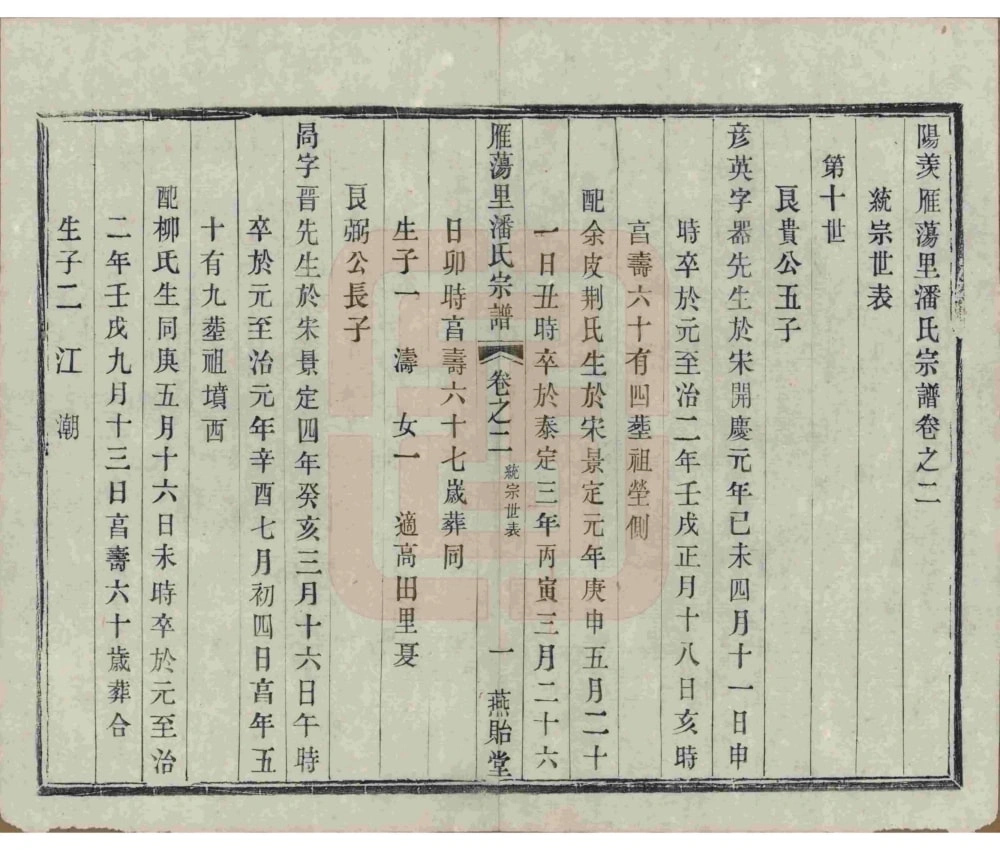 陽羡雁蕩里潘氏宗譜卷之二
統宗世表
第十世
艮貴公五子
彦英字器先生於宋開慶元年已未四月十一日申
時卒於元至治二年壬戌正月十八日亥時
髙壽六十有四塟祖塋側
配余皮荆氏生於宋景定元年庚申五月二十
一日丑時卒於泰定三年丙寅三月二十六
雁蕩里潘氏宗譜 卷之二 統宗世表 一 燕貽堂
日卯時髙壽六十七嵗葬同
生子一 濤 女一 適高田里夏
艮弼公長子
咼字晋先生於宋景定四年癸亥三月十六日午時
卒於元至治元年辛酉七月初四日髙年五
十有九塟祖墳西
配柳氏生同庚五月十六日未時卒於元至治
二年壬戌九月十三日髙壽六十歲葬合
生子二 江 潮